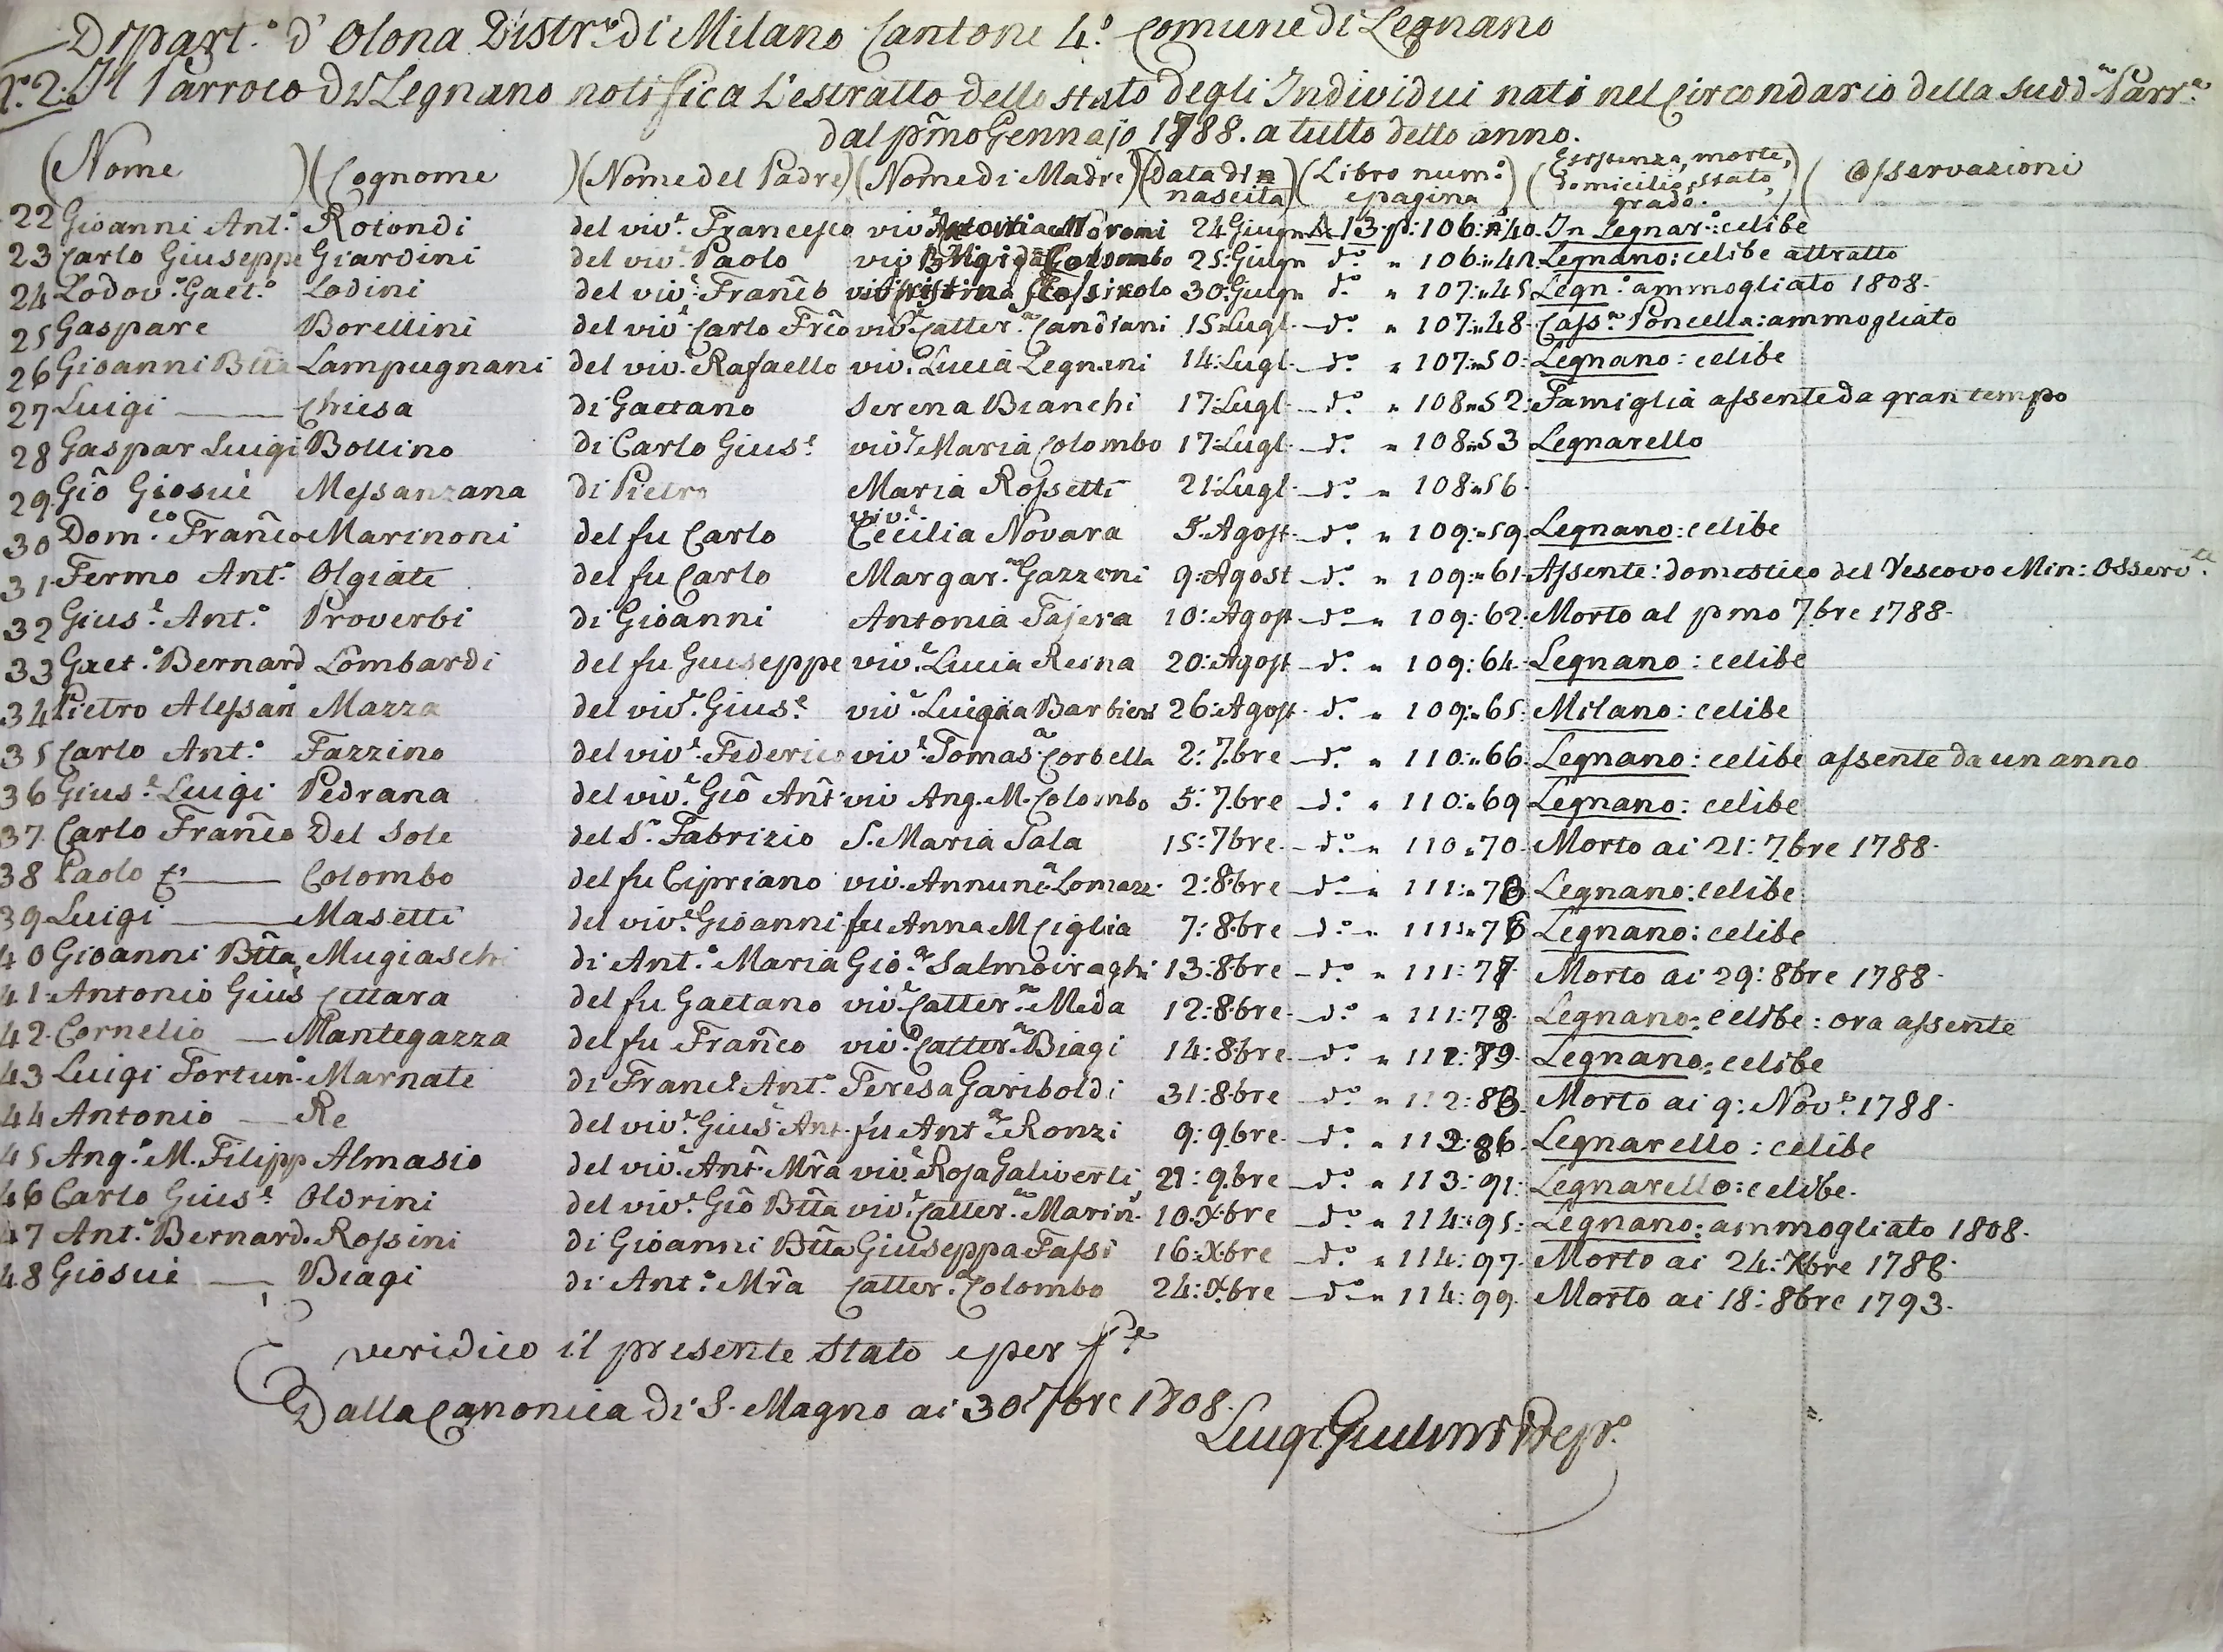 Dipart.o d'Olona Distr.o di Milano Cantone 4.o Comune di Legnano
Il Parroco di Legnano notifica l'estratto dello stato degli Individui nati nel Circondario della sudd.a Parr.a
dal pmo Gennajo 1788. a tutto detto anno.
(Nome )(Cognome )(Nome del Padre)(Nome di Madre)(Data di nascita)(Libro num:o e pagina)(Esistenza, morte, domicilio, stato, grado.)( Osservazioni
22 Gioanni Ant.o Rotondi del viv.e Francesco viv. Antonia Moroni 24 Giugn L. 13 p: 106: n 40. In Legnar.o: celibe
23 Carlo Giuseppe Giardini del viv.e Paolo viv. Brigida Colombo 25: Giugn d.o " 106: Legnano: celibe attratto
24 Lodov.o Gaet.o Lodini del viv.e Franco 30: Giugn d.o " 107: 45 Legn.o ammogliato 1808.
25 Gaspare Borellini del viv.e Carlo Frco viv.e Catter.a Candiani 15: Lugl. d.o " 107: 48. Cass.a Poncella: ammogliato
26 Gioanni Btta Lampugnani del viv.e Rafaello viv.e Lucia Legnani 14: Lugl. d.o " 107: 50: Legnano: celibe
27 Luigi — Chiesa di Gaetano Serena Bianchi 17: Lugl. d.o " 108 " 52: Famiglia assente da gran tempo
28 Gaspar Luigi Bollino di Carlo Gius.e viv.e Maria Colombo 17: Lugl. d.o " 108: 53 Legnarello
29. Gio Giosuè Messanzana di Pietro Maria Rossetti 21: Lugl. d.o " 108 " 56.
30 Dom.co Franco Marinoni del fu Carlo viv.e Cecilia Novara 5. Agost. d.o " 109: " 59. Legnano: celibe
31. Fermo Ant.o Olgiati del fu Carlo Margar.a Gazzoni 9: Agost d.o " 109: " 61. Assente: domestico del Vescovo Min: Osserv.te
32 Gius.e Ant.o Proverbi di Gioanni Antonia Tajera 10: Agost d.o " 109: 62: Morto al pmo 7bre 1788.
33 Gaet.o Bernard Lombardi del fu Giuseppe viv.e Lucia Reina 20: Agost d.o " 109: 64. Legnano: celibe
34 Pietro Alessan Mazza del viv.e Gius.e viv.e Luigia Barbieri 26: Agost. d.o " 109: " 65: Milano: celibe
35 Carlo Ant.o Fazzino del viv.e Federico viv.e Tomas.a Corbella 2: 7.bre d.o " 110: " 66. Legnano: celibe assente da un anno
36 Gius.e Luigi Pedrana del viv.e Gio Ant viv Ang. M. Colombo 5: 7.bre d.o " 110: " 69 Legnano: celibe
37. Carlo Franco Del Sole del S.r Fabrizio S. Maria Sala 15: 7bre. d.o " 110 " 70. Morto ai 21: 7.bre 1788.
38 Paolo — Colombo del fu Cipriano viv. Annunc.a Lomazz. 2: 8.bre d.o " 111: " Legnano: celibe
39. Luigi — Masetti del viv.e Gioanni fu Anna M Ciglia 7: 8.bre d.o " 111: Legnano: celibe
40 Gioanni Btta Mugiaschi di Ant.o Maria Gio.a Salmoiraghi 13: 8bre d.o " 111: 77 Morto ai 29: 8bre 1788.
41. Antonio Gius Cittara del fu Gaetano viv.e Catter.a Meda 12: 8.bre d.o " 111: 78. Legnano: celibe: ora assente
42. Cornelio — Mantegazza del fu Franco viv.e Catter.a Biagi 14: 8.bre. d.o " 79. Legnano: celibe
43 Luigi Fortun.o Marnati di Franc.o Ant.o Teresa Gariboldi 31: 8.bre d.o " 112: 83. Morto ai 9: Nov.e 1788.
44 Antonio — Re del viv.e Gius.e Ant. fu Ant.a Ronzi 9: 9.bre. d.o " 86. Legnarello: celibe
45 Ang.o M. Filipp Almasio del viv.e Ant. Mra viv.e Rosa Galiverti 21: 9.bre d.o " 113: 91: Legnarello: celibe.
46 Carlo Gius.e Oldrini del viv.e Gio Btta viv.e Catter.a Marin. 10. X.bre d.o " 114: 95: Legnano: ammogliato 1808.
47 Ant.o Bernard. Rossini di Gioanni Btta Giuseppa Fassi 16: X.bre d.o " 114: 97. Morto ai 24: Xbre 1788.
48 Giosuè — Biagi di Ant.o Mra Catter.a Colombo 24: X.bre d.o " 114: 99. Morto ai 18: 8bre 1793.
veridico il presente stato e per fe
Dalla Canonica di S. Magno ai 30 7bre 1808.
Luigi